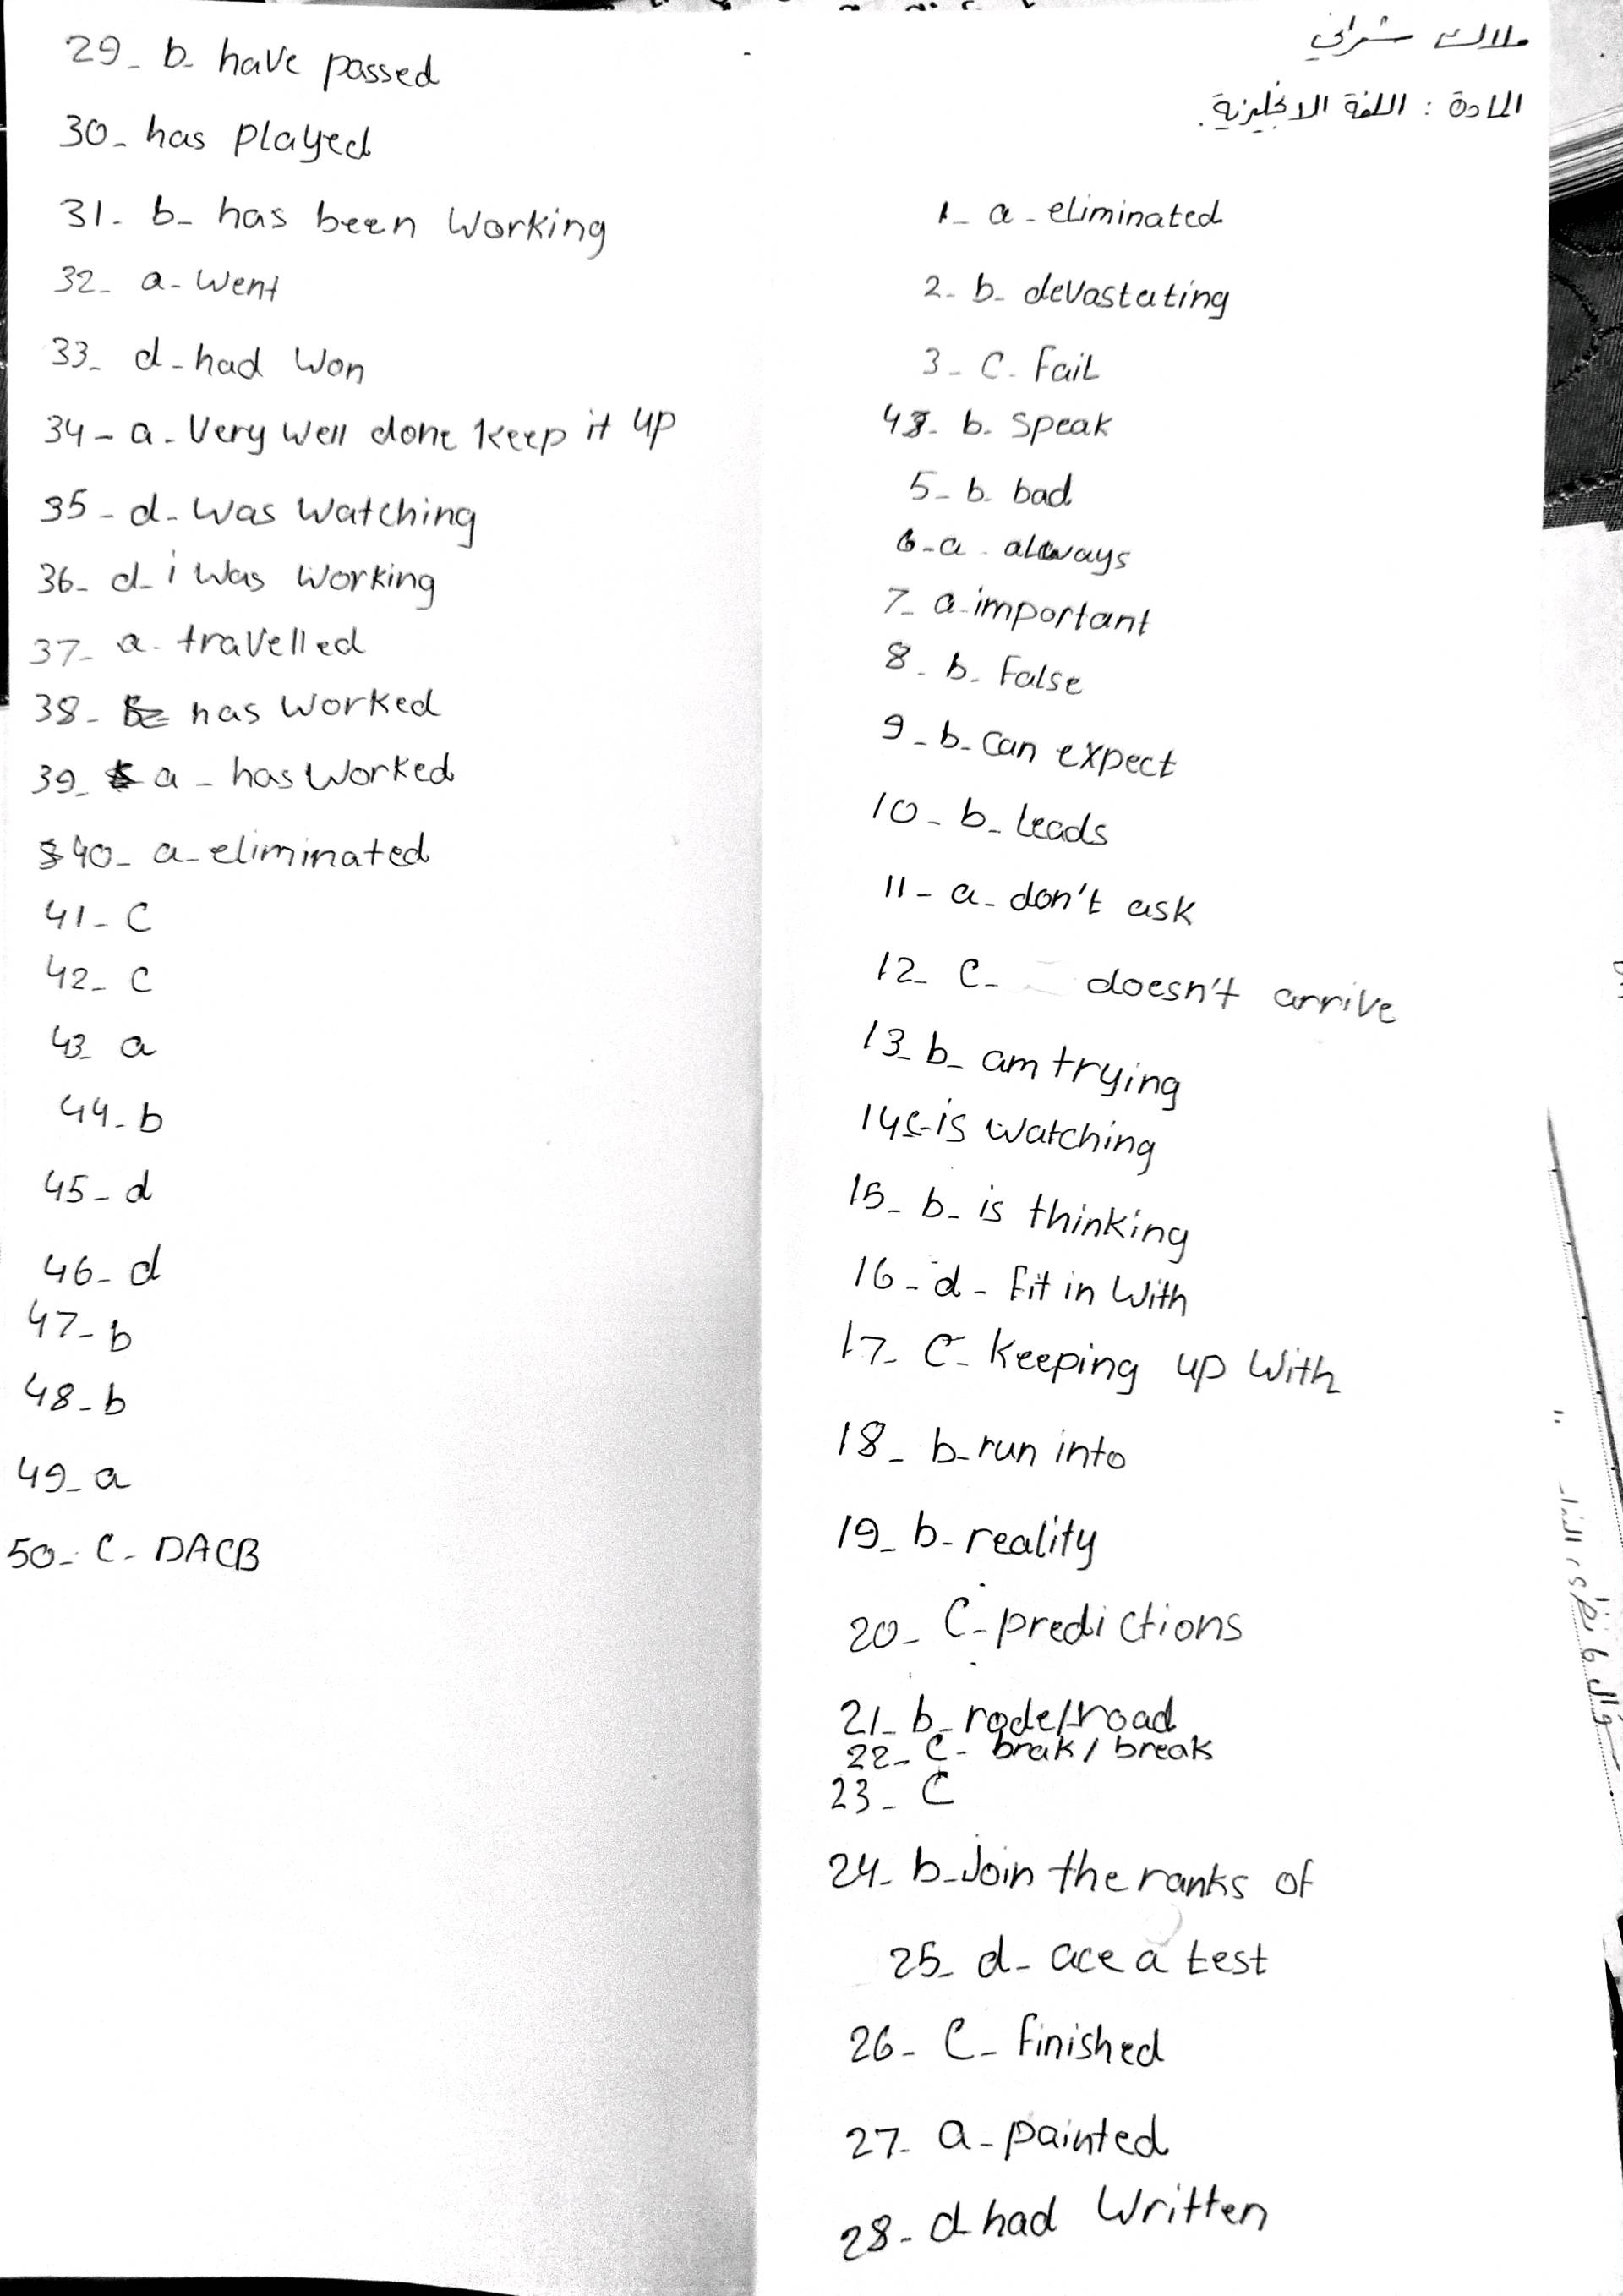 ملاك شعراني
المادة : اللغة الانجليزية.
1- a - eliminated
2- b- devastating
3- C- Fail
4- b- Speak
5- b- bad
6-a - always
7- a-important
8- b- False
9-b- can expect
10- b- leads
11- a- don't ask
12- C- doesn't arrive
13-b- am trying
14c-is watching
15- b- is thinking
16-d- fit in With
17- C- keeping up With
18- b-run into
19- b-reality
20- C-predictions
21- b- rode/road
22- C- brak / break
23- C
24- b-Join the ranks of
25- d- ace a test
26- C- finished
27- a-painted
28- d-had Written
29- b- have passed
30- has Played
31- b- has been Working
32- a- Went
33- d-had Won
34- a- Very Well done keep it up
35- d- Was Watching
36- d- i Was Working
37- a- travelled
38- has Worked
39- a- has Worked
40- a-eliminated
41- C
42- C
43- a
44- b
45- d
46- d
47- b
48- b
49- a
50- C- DACB